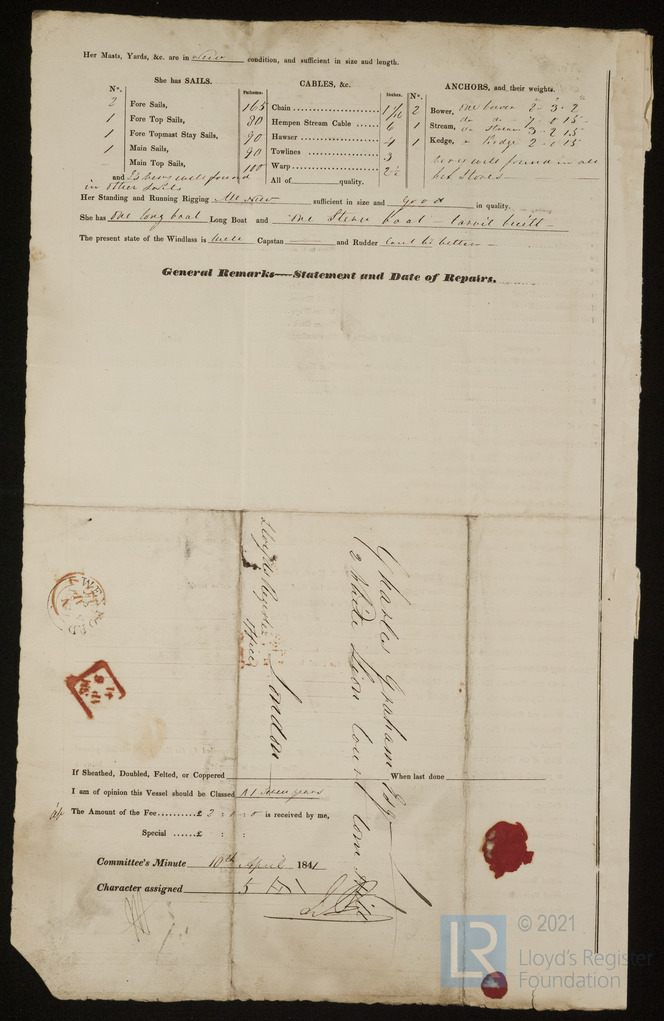 Her Masts, Yards, &c. are in New condition, and sufficient in size and length.
She has SAILS.
CABLES, &c.
ANCHORS, and their weights.
Nº.
Fathoms.
Inches.
Nº.
2 Fore Sails,
1 Fore Top Sails,
1 Fore Topmast Stay Sails,
1 Main Sails,
Main Top Sails,
and Is very well found
in other Sails
Chain 165 1 1/16
Hempen Stream Cable 80 6
Hawser 90 4
Towlines 90 3
Warp 110 2½
All of quality.
2 Bower, one bower 2 - 3 - 2
do do - 0 15 -
1 Stream, Stream 3 - 2 15
1 Kedge, Kedge 2 - 0 15
very well found in all
her Stores -
Her Standing and Running Rigging All New sufficient in size and good in quality.
She has one long boat Long Boat and one Stern boat - Carvil built -
The present state of the Windlass is well Capstan and Rudder
General Remarks—Statement and Date of Repairs.
Charles Graham Esq
2 White Lion Court Cornhill
Lloyds Register
Office
London
WEXFORD
If Sheathed, Doubled, Felted, or Coppered When last done
I am of opinion this Vessel should be Classed A1 Seven years
The Amount of the Fee £ 2 : 0 : 0 is received by me,
Special £ : :
Committee's Minute 10th April 1841
Character assigned 5
© 2021
LR
Lloyd's Register
Foundation